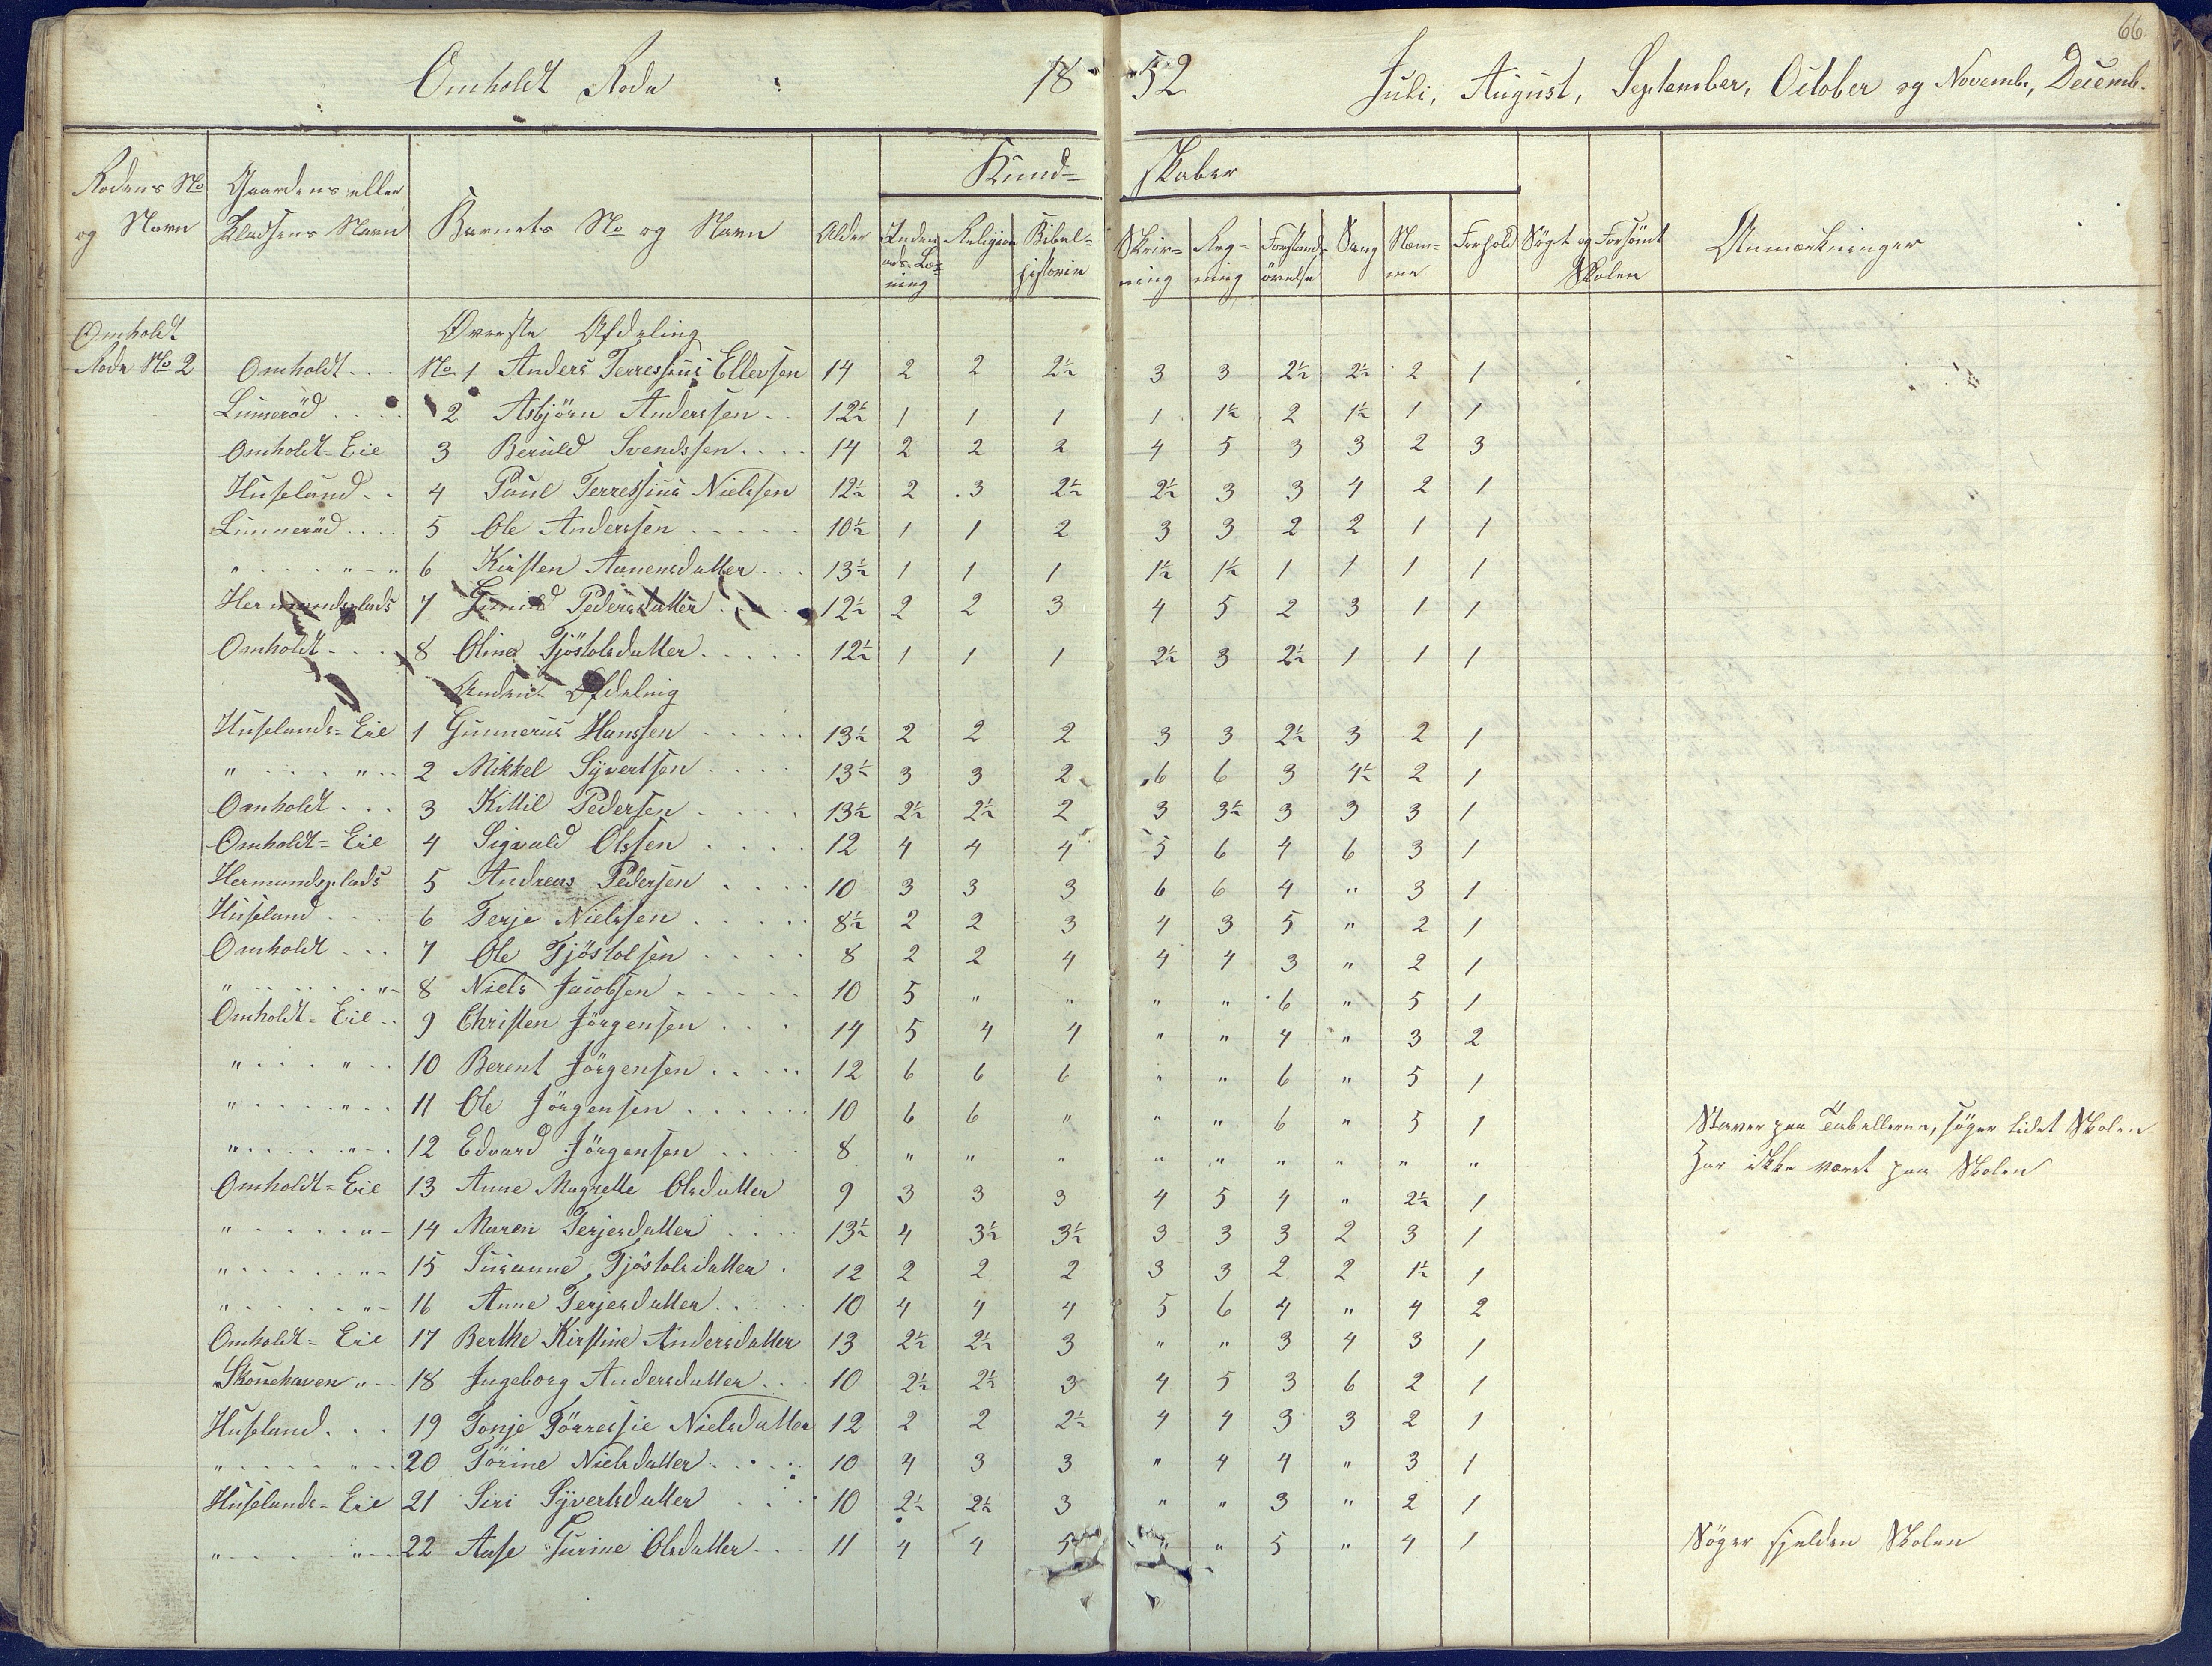 66.
Omholdt Rode 18 52 Juli, August, September, October og Novembr, Decemb.
Kund= skaber
Rodens No og Navn Gaardens eller Pladsens Navn Barnets No og Navn Alder Inden- ads-Læs- ning Religion Bibel= historie Skriv= ning Reg= ning Forstands øvelse Sang Nem= me Forhold Søgt og Forsömt Skolen Anmærkninger
Omholdt Øverste Afdeling
Rode No 2 Omholdt... No 1 Anders Terressius Ellevsen 14 2 2 2½ 3 3 2½ 2½ 2 1
Linneröd.... 2 Asbjörn Anderssen.. 12½ 1 1 1 1 1½ 2 1½ 1 1
Omholdt=Eie 3 Beruld Svendssen.... 14 2 2 2 4 5 3 3 2 3
Huseland.. 4 Poul Terressius Nielssen 12½ 2 3 2½ 2½ 3 3 4 2 1
Linneröd.... 5 Ole Anderssen..... 10½ 1 1 2 3 3 2 2 1 1
" " 6 Kirsten Aanensdatter... 13½ 1 1 1 1½ 1½ 1 1 1 1
Hermandsplads 7 Gunild Pedersdatter.... 12½ 2 2 3 4 5 2 3 1 1
Omholdt... 8 Oline Tjöstolsdatter..... 12½ 1 1 1 2½ 3 2½ 1 1 1
Anden Afdeling
Huselands=Eie 1 Gunnerius Hanssen..... 13½ 2 2 2 3 3 2½ 3 2 1
" " 2 Mikkel Syvertsen.... 13½ 3 3 2 6 6 3 4½ 2 1
Omholdt... 3 Kittil Pedersen.... 13½ 2½ 2½ 2 3 3½ 3 3 3 1
Omholdt=Eie 4 Sigvald Olssen.... 12 4 4 4 5 6 4 6 3 1
Hermandsplads 5 Andreas Pedersen.... 10 3 3 3 6 6 4 " 3 1
Huseland... 6 Terje Nielssen..... 8½ 2 2 3 4 3 5 " 2 1
Omholdt... 7 Ole Tjöstolsen.... 8 2 2 4 4 4 3 " 2 1
" " 8 Niels Jacobsen..... 10 5 " " " " 6 " 5 1
Omholdt=Eie.. 9 Christen Jörgensen... 14 5 4 4 " " 4 " 3 2
" " 10 Berent Jörgensen..... 12 6 6 6 " " 6 " 5 1
" " 11 Ole Jörgensen...... 10 6 6 " " " 6 " 5 1 Staver paa Tabellerne, söger lidet Skolen
" " 12 Edvard Jörgensen.... 8 " " " " " " " " " Har ikke været paa Skolen
Omholdt=Eie 13 Anne Magrette Olsdatter 9 3 3 3 4 5 4 " 2½ 1
" " 14 Maren Terjesdatter.... 13½ 4 3½ 3½ 3 3 3 2 3 1
" " 15 Susanne Tjöstolsdatter. 12 2 2 2 3 3 2 2 1½ 1
" " 16 Anne Terjesdatter.... 10 4 4 4 5 6 4 " 4 2
Omholdt=Eie 17 Berthe Kirstine Andersdatter 13 2½ 2½ 3 " " 3 4 3 1
Skonehaven " 18 Ingeborg Andersdatter.. 10 2½ 2½ 3 4 5 3 6 2 1
Huseland... 19 Tonje Törressie Nielsdatter 12 2 2 2½ 4 4 3 3 2 1
" " 20 Törine Nielsdatter.... 10 4 3 3 " 4 4 " 3 1
Huselands=Eie 21 Siri Syvertsdatter... 10 2½ 2½ 3 " " 3 " 2 1
" " 22 Aase Gurine Olsdatter... 11 4 4 5 " " 5 " 4 1 Söger sjelden Skolen